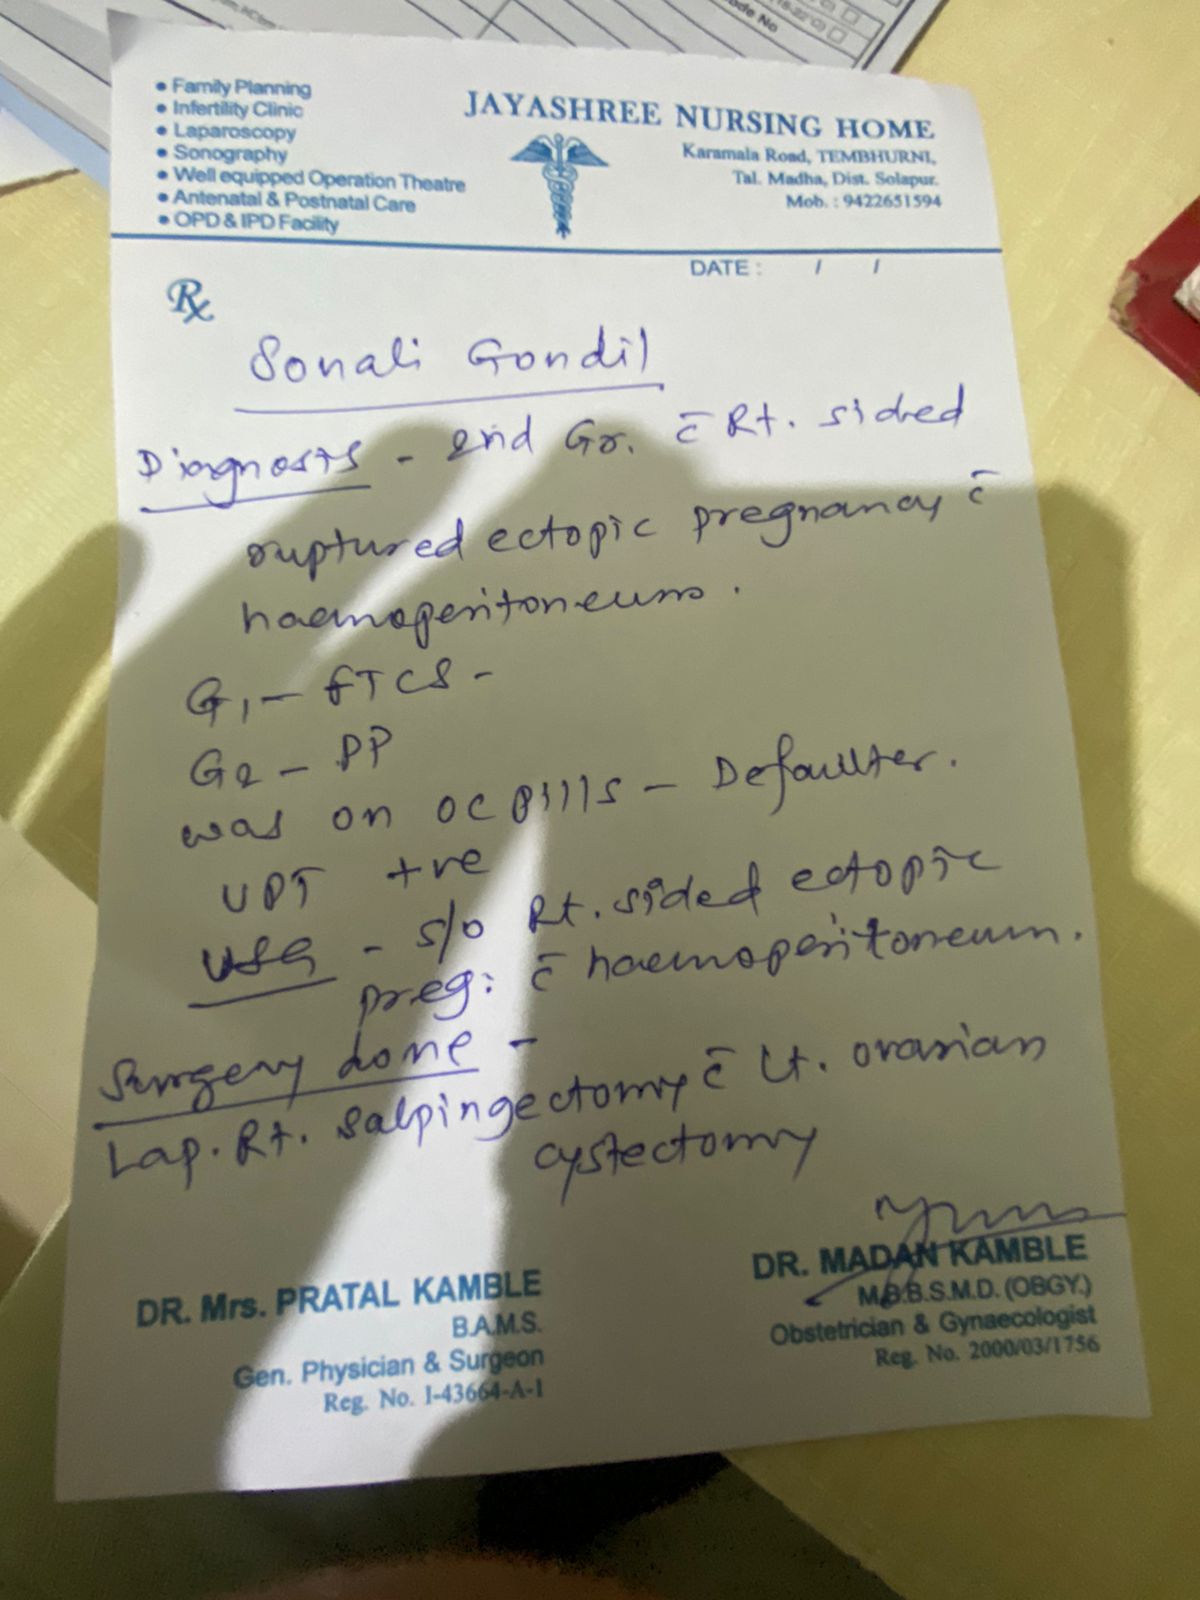 • Family Planning
• Infertility Clinic
• Laparoscopy
• Sonography
• Well equipped Operation Theatre
• Antenatal & Postnatal Care
• OPD & IPD Facility
JAYASHREE NURSING HOME
Karamala Road, TEMBHURNI,
Tal. Madha, Dist. Solapur.
Mob. : 9422651594
DATE : / /
Rx
Sonali Gondil
Diagnosis - 2nd Gr. c̄ Rt. sided
ruptured ectopic pregnancy c̄
haemoperitoneum.
G1 - FTCS -
G2 - PP
was on OC pills - Defaulter.
UPT +ve
USG - s/o Rt. sided ectopic
preg: c̄ haemoperitoneum.
Surgery done -
Lap. Rt. Salpingectomy c̄ Lt. ovarian
cystectomy
DR. Mrs. PRATAL KAMBLE
B.A.M.S.
Gen. Physician & Surgeon
Reg. No. I-43664-A-1
DR. MADAN KAMBLE
M.B.B.S.M.D. (OBGY.)
Obstetrician & Gynaecologist
Reg. No. 2000/03/1756